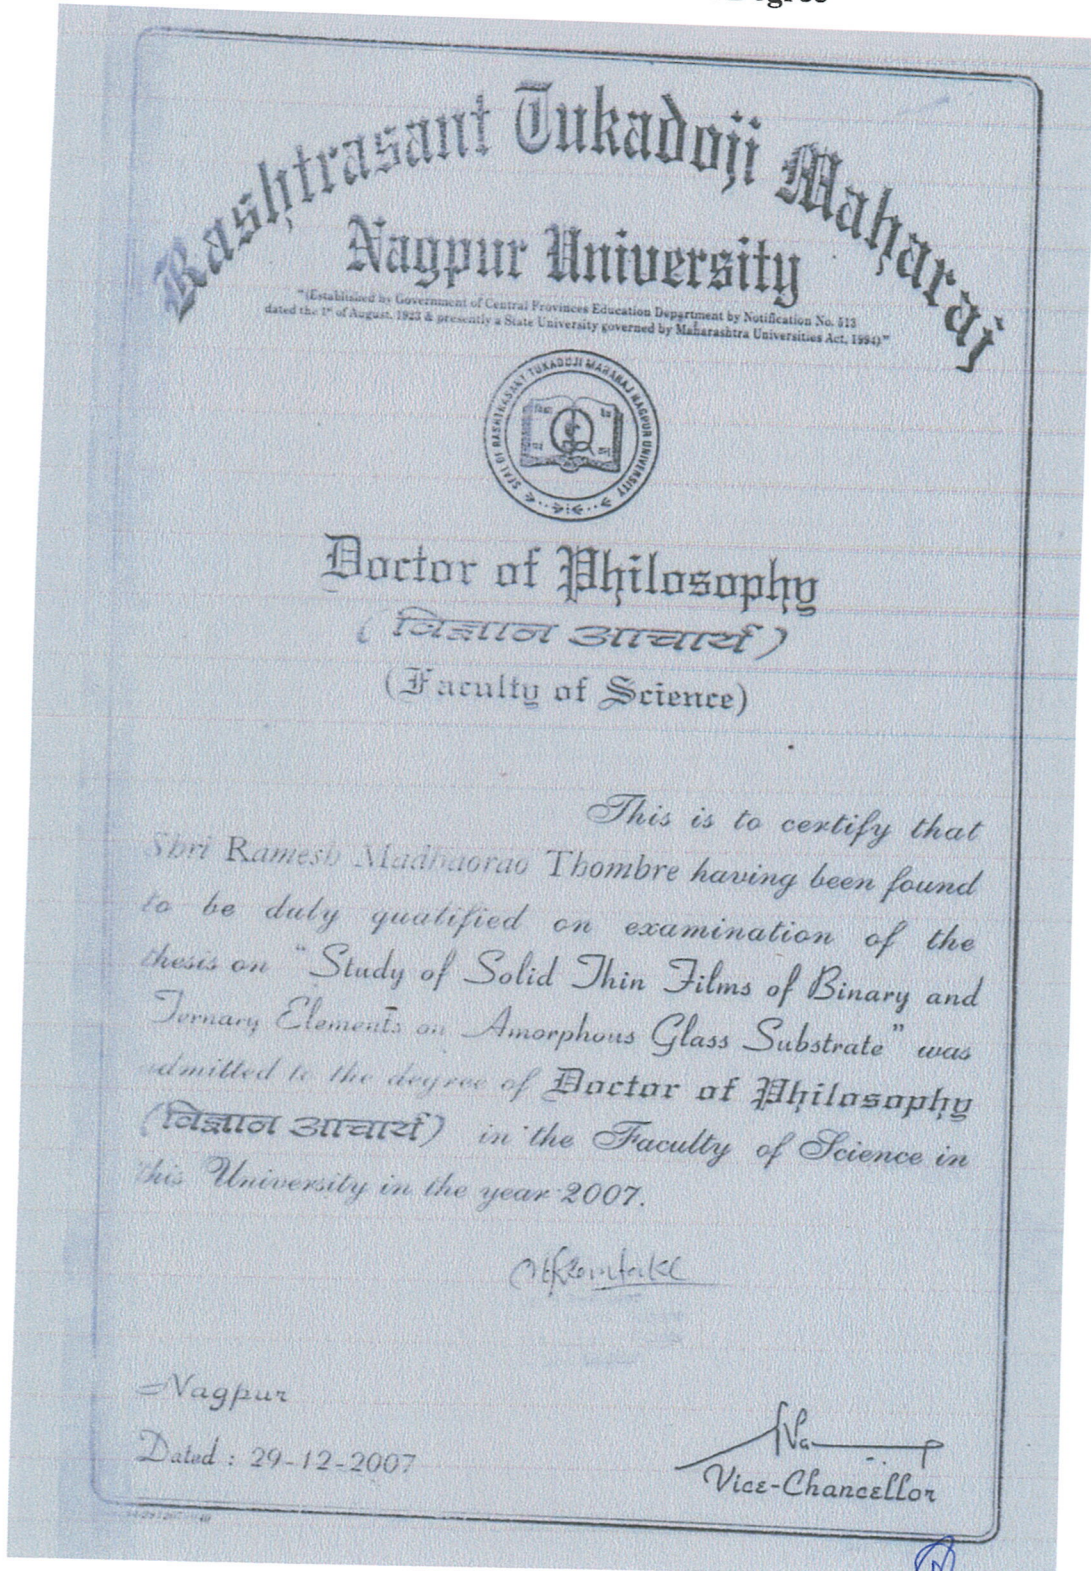 Degree
Rashtrasant Tukadoji Maharaj
Nagpur University
"(Established by Government of Central Provinces Education Department by Notification No. 513
dated the 1st of August, 1923 & presently a State University governed by Maharashtra Universities Act, 1994)"
SEAL OF RASHTRASANT TUKADOJI MAHARAJ NAGPUR UNIVERSITY
Doctor of Philosophy
(विज्ञान आचार्य)
(Faculty of Science)
This is to certify that
Shri Ramesh Madhaorao Thombre having been found
to be duly qualified on examination of the
thesis on "Study of Solid Thin Films of Binary and
Ternary Elements on Amorphous Glass Substrate" was
admitted to the degree of Doctor of Philosophy
(विज्ञान आचार्य) in the Faculty of Science in
this University in the year 2007.
Nagpur
Dated : 29-12-2007
Vice-Chancellor